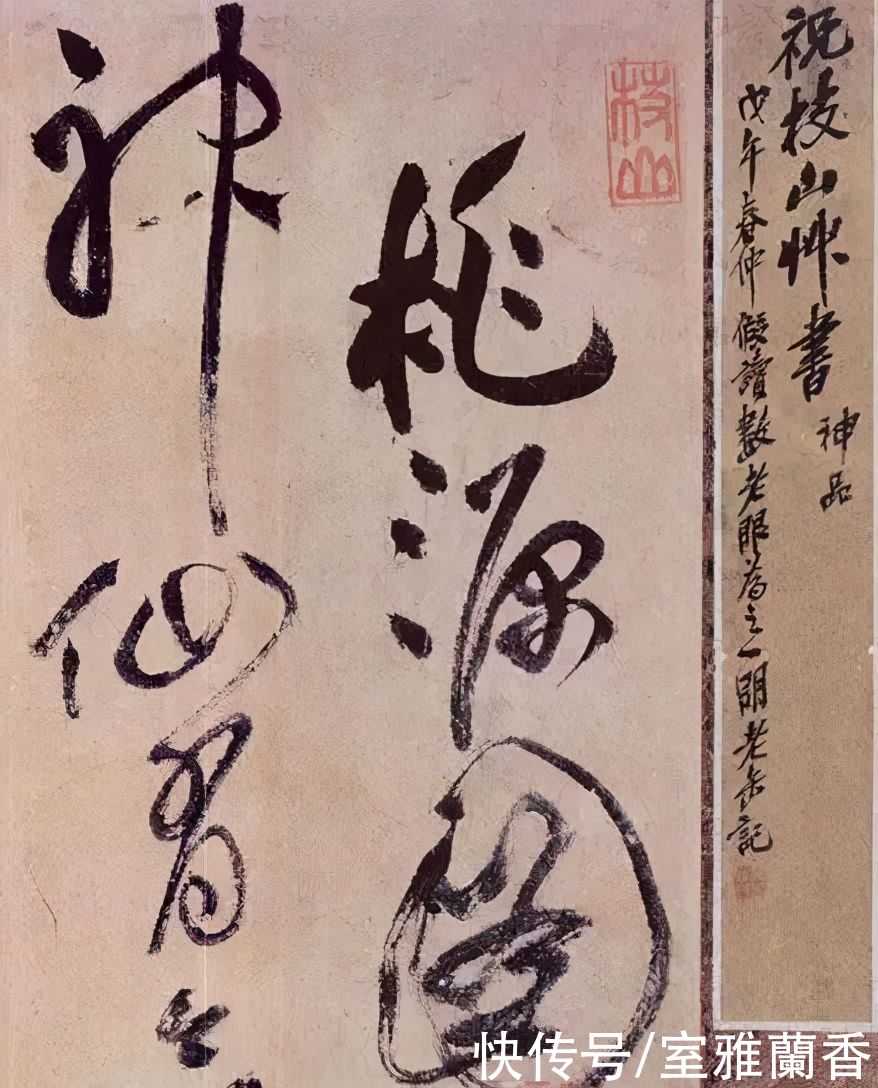 祝枝山艸書
神品
戊午春仲假讀數老眼為之一明老缶記
枝山
桃源圖
神仙有
快传号/室雅蘭香